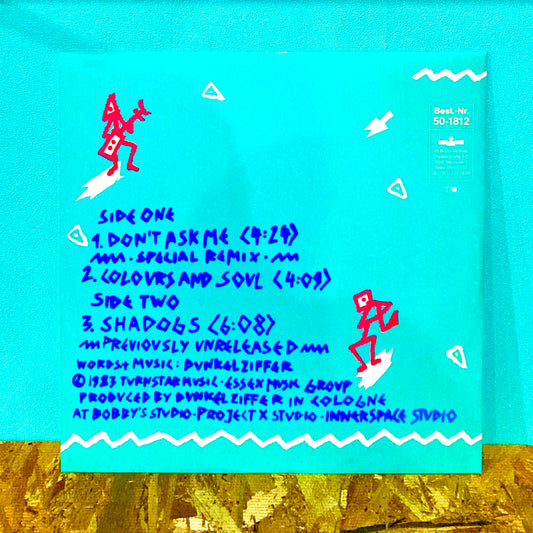 Best.-Nr.
50-1812
SIDE ONE
1. DON'T ASK ME (4:24)
· SPECIAL REMIX ·
2. COLOURS AND SOUL (4:09)
SIDE TWO
3. SHADOGS (6:08)
PREVIOUSLY UNRELEASED
WORDS + MUSIC: DUNKELZIFFER
© 1983 TURNSTAR MUSIC · ESSEX MUSIC GROUP
PRODUCED BY DUNKELZIFFER IN COLOGNE
AT BOBBY'S STUDIO · PROJECT X STUDIO · INNERSPACE STUDIO